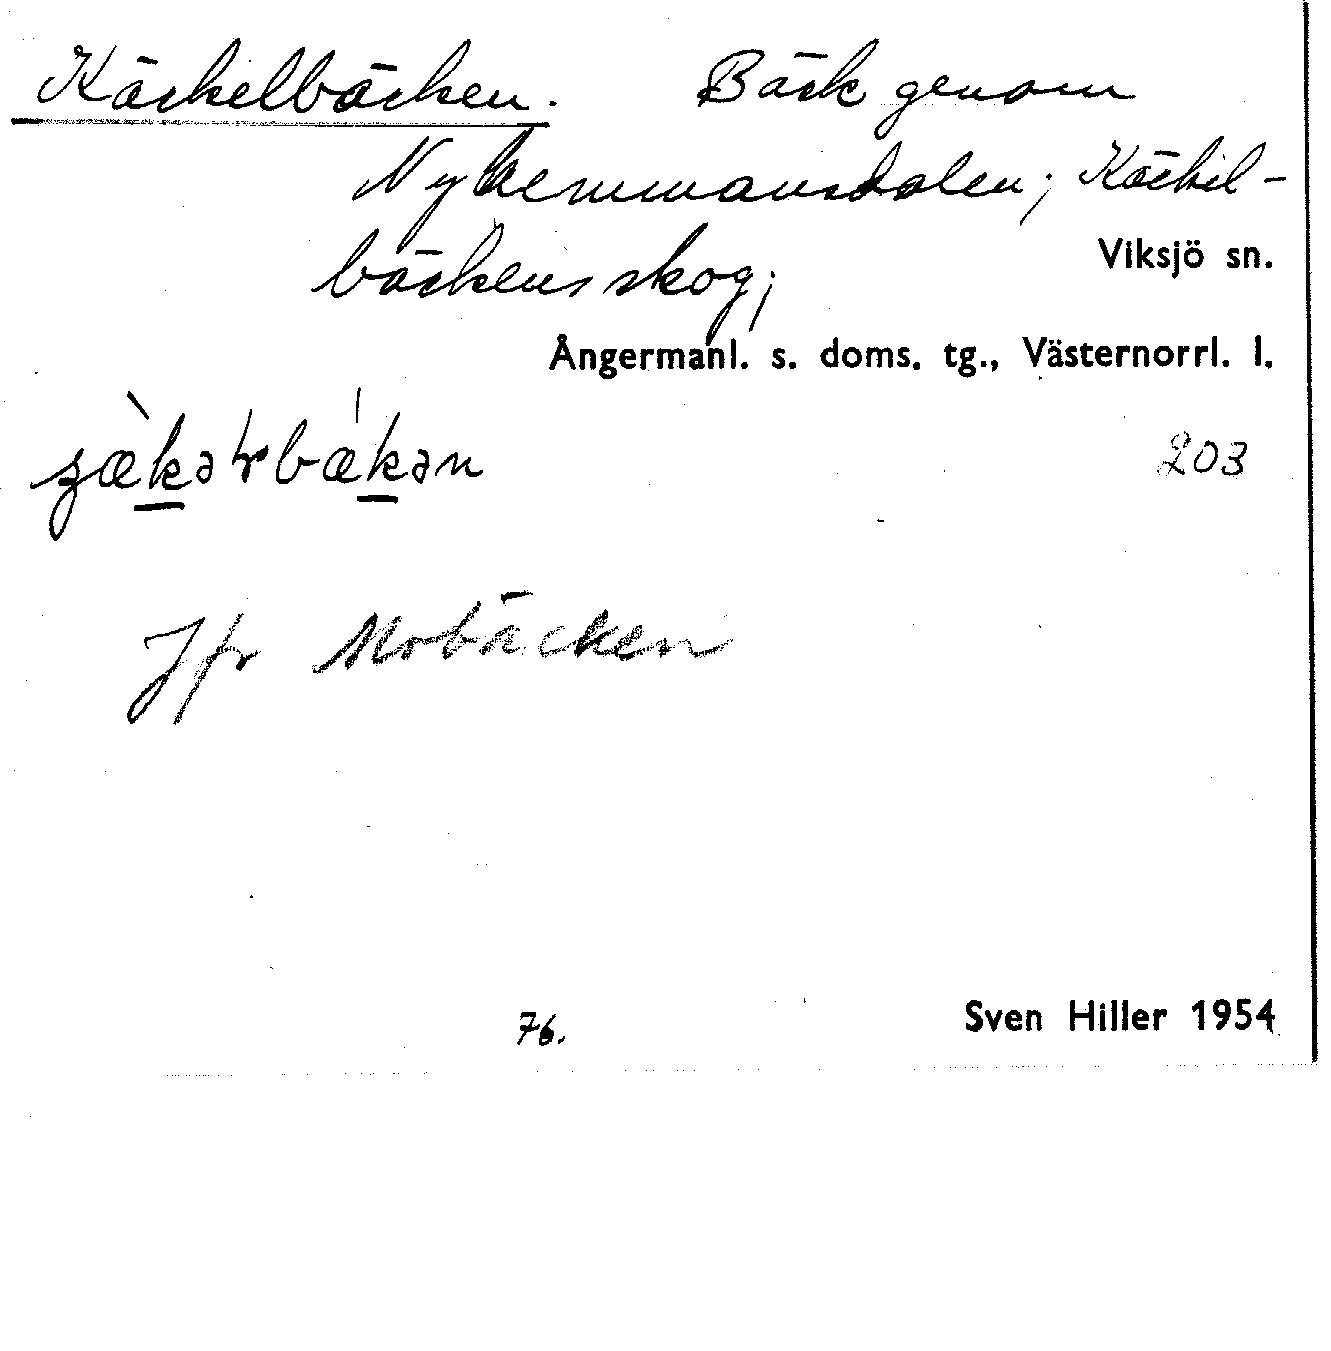 Käckelbäcken. Bäck genom
Nyhemmansdalen; Käckil-
bäckens skog;
Viksjö sn.
Ångermanl. s. doms. tg., Västernorrl. l.
203
Jfr Mobäcken
76.
Sven Hiller 1954